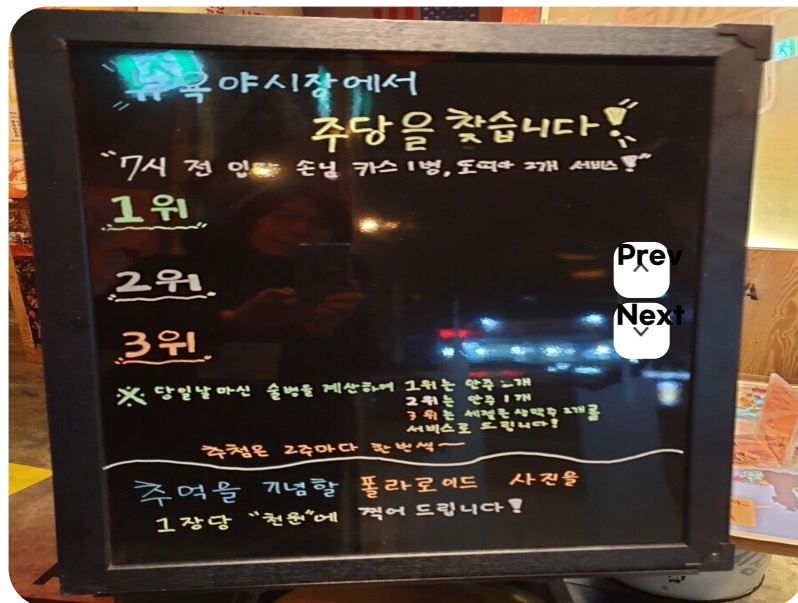 뉴욕야시장에서
주당을 찾습니다!
"7시 전 입장 손님 카스 1병, 또띠아 2개 서비스!"
1위
2위
3위
※ 당일날 마신 술병을 계산하여 1위는 안주 2개
2위는 안주 1개
3위는 생맥주 2개를
서비스로 드립니다!
추첨은 2주마다 한번씩~
추억을 기념할 폴라로이드 사진을
1장당 "천원"에 찍어 드립니다!
Prev
Next